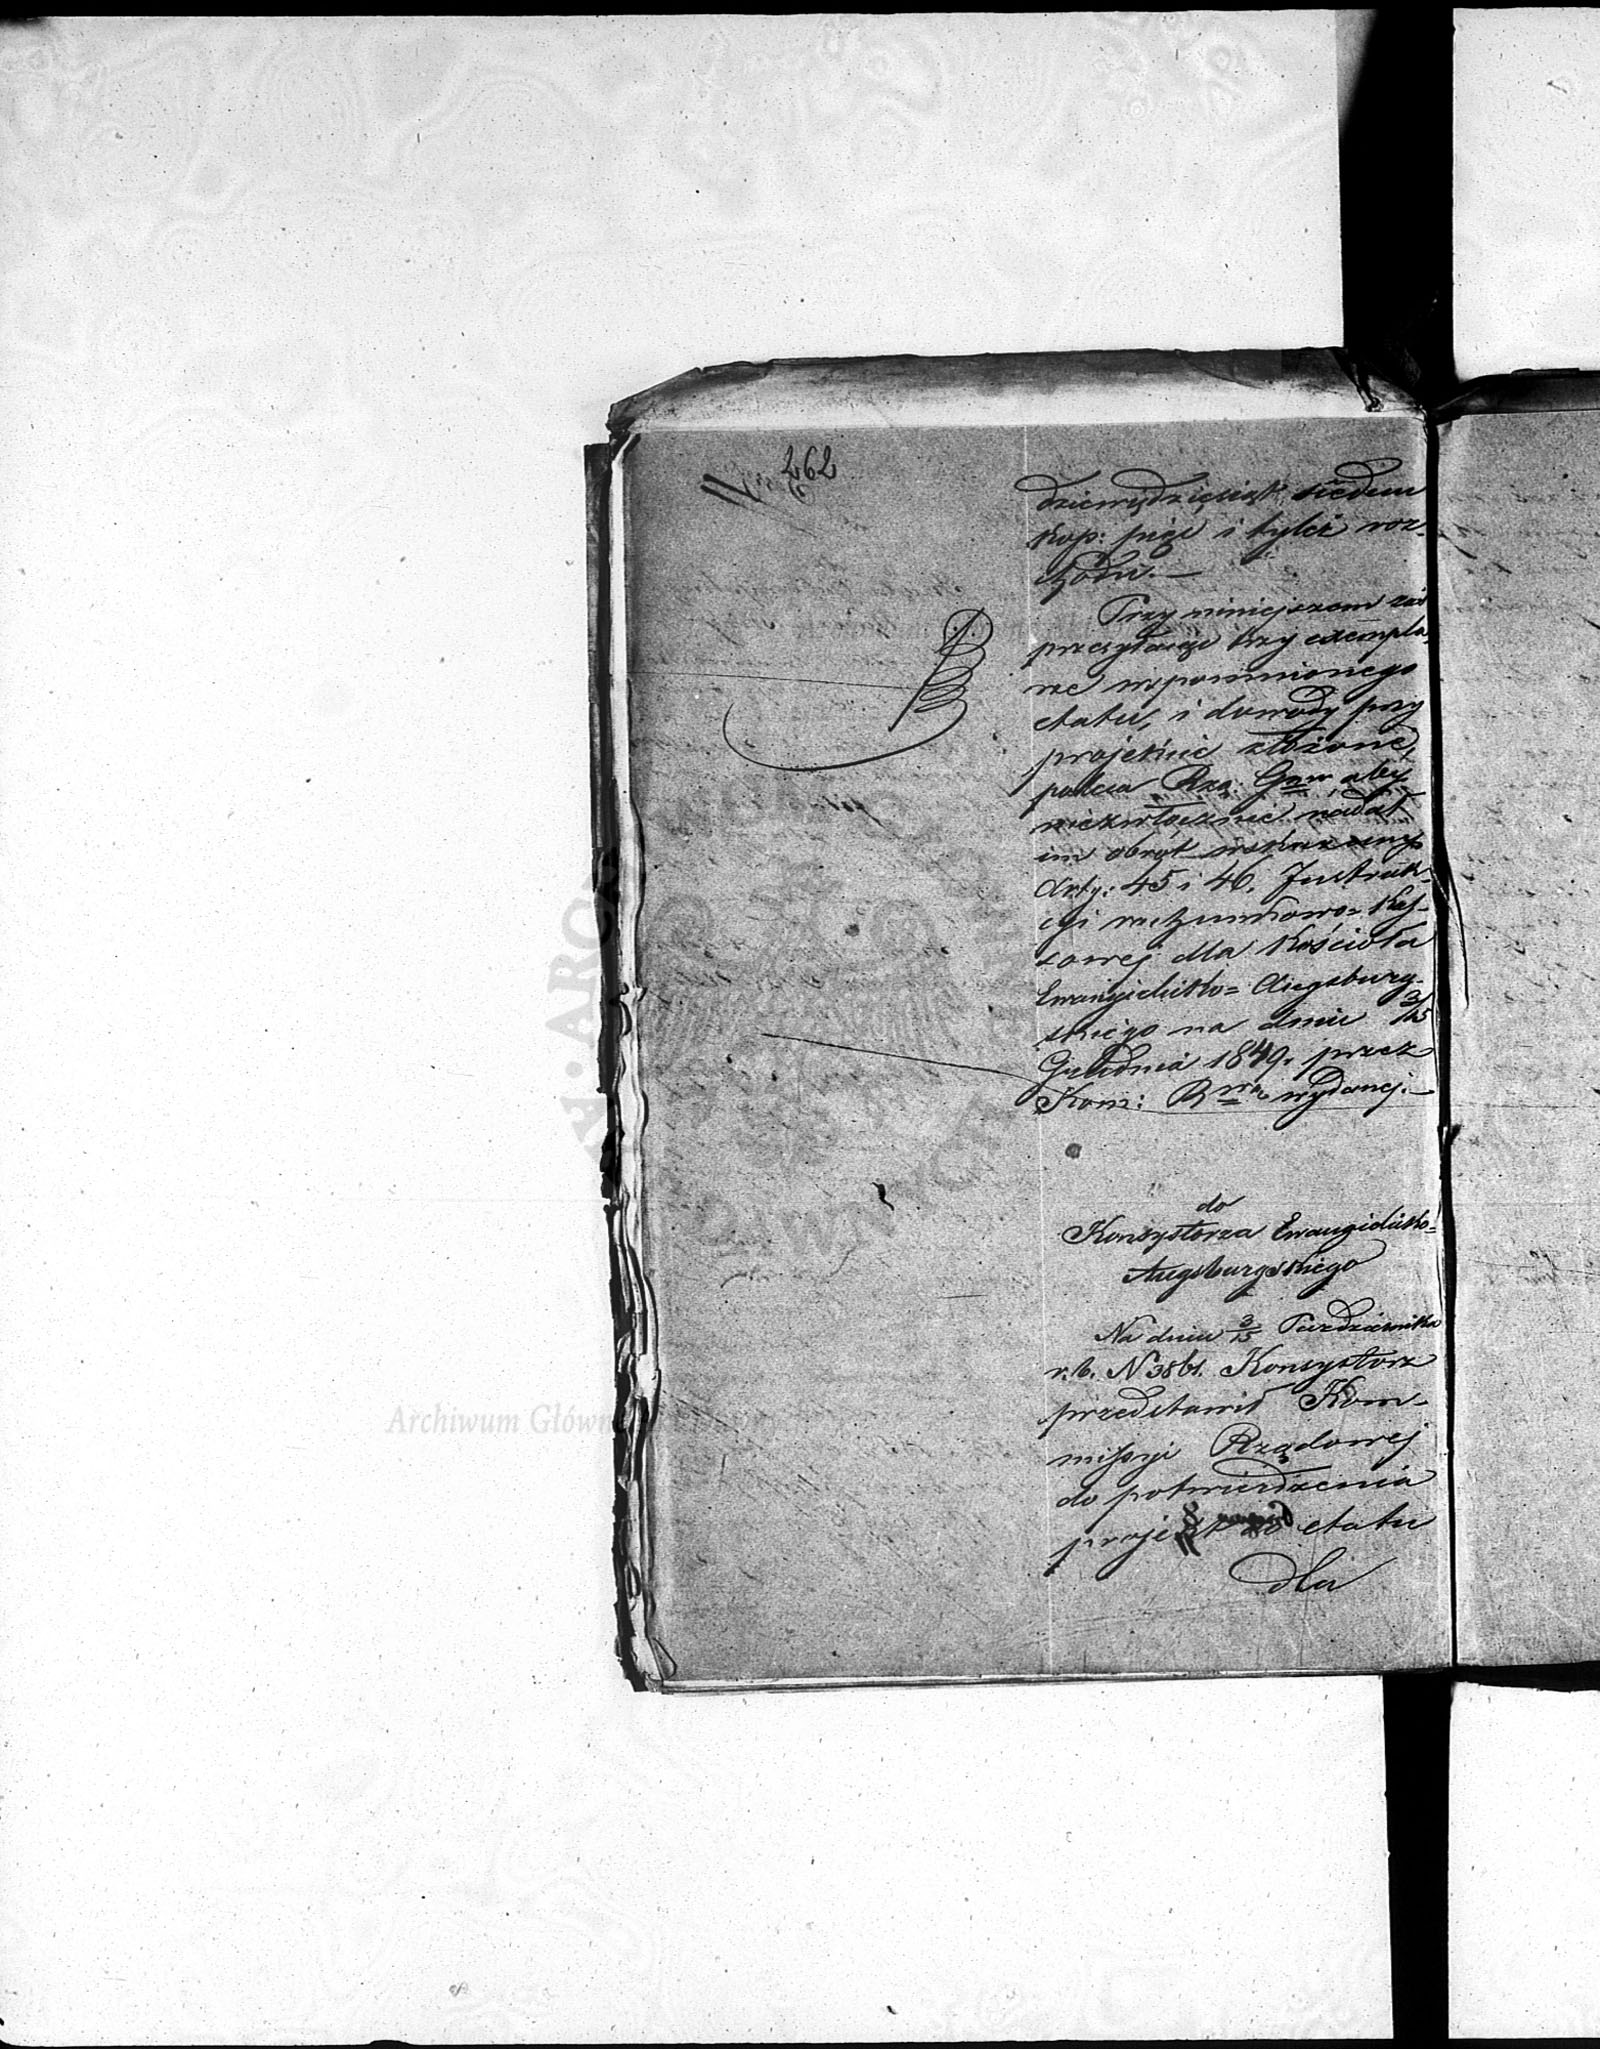 262
dziewiędziesiąt siedem
kop: pięć i tyleż roz-
chodu. —
Przy niniejszem zaś
przesyłając trzy exempla-
rze wspomnionego
etatu, i dowody przy
projekcie złożone,
poleca Rzą: Gm aby
niezwłocznie nadał
im obrót wskazany
Arty: 45 i 46. Instruk-
cyi rachunkowo= Kas-
sowej dla Kościoła
Ewangielicko= Augsburg-
skiego na dniu 3/15
Grudnia 1849. przez
Kom: Rwą wydanej. —
do
Konsystorza Ewangielicko=
Augsburgskiego
Na dniu 3/15 Października
r. b. N 3861. Konsystorz
przedstawił Kom-
missyi Rządowej
do potwierdzenia
projekt do etatu
dla
Archiwum Główn